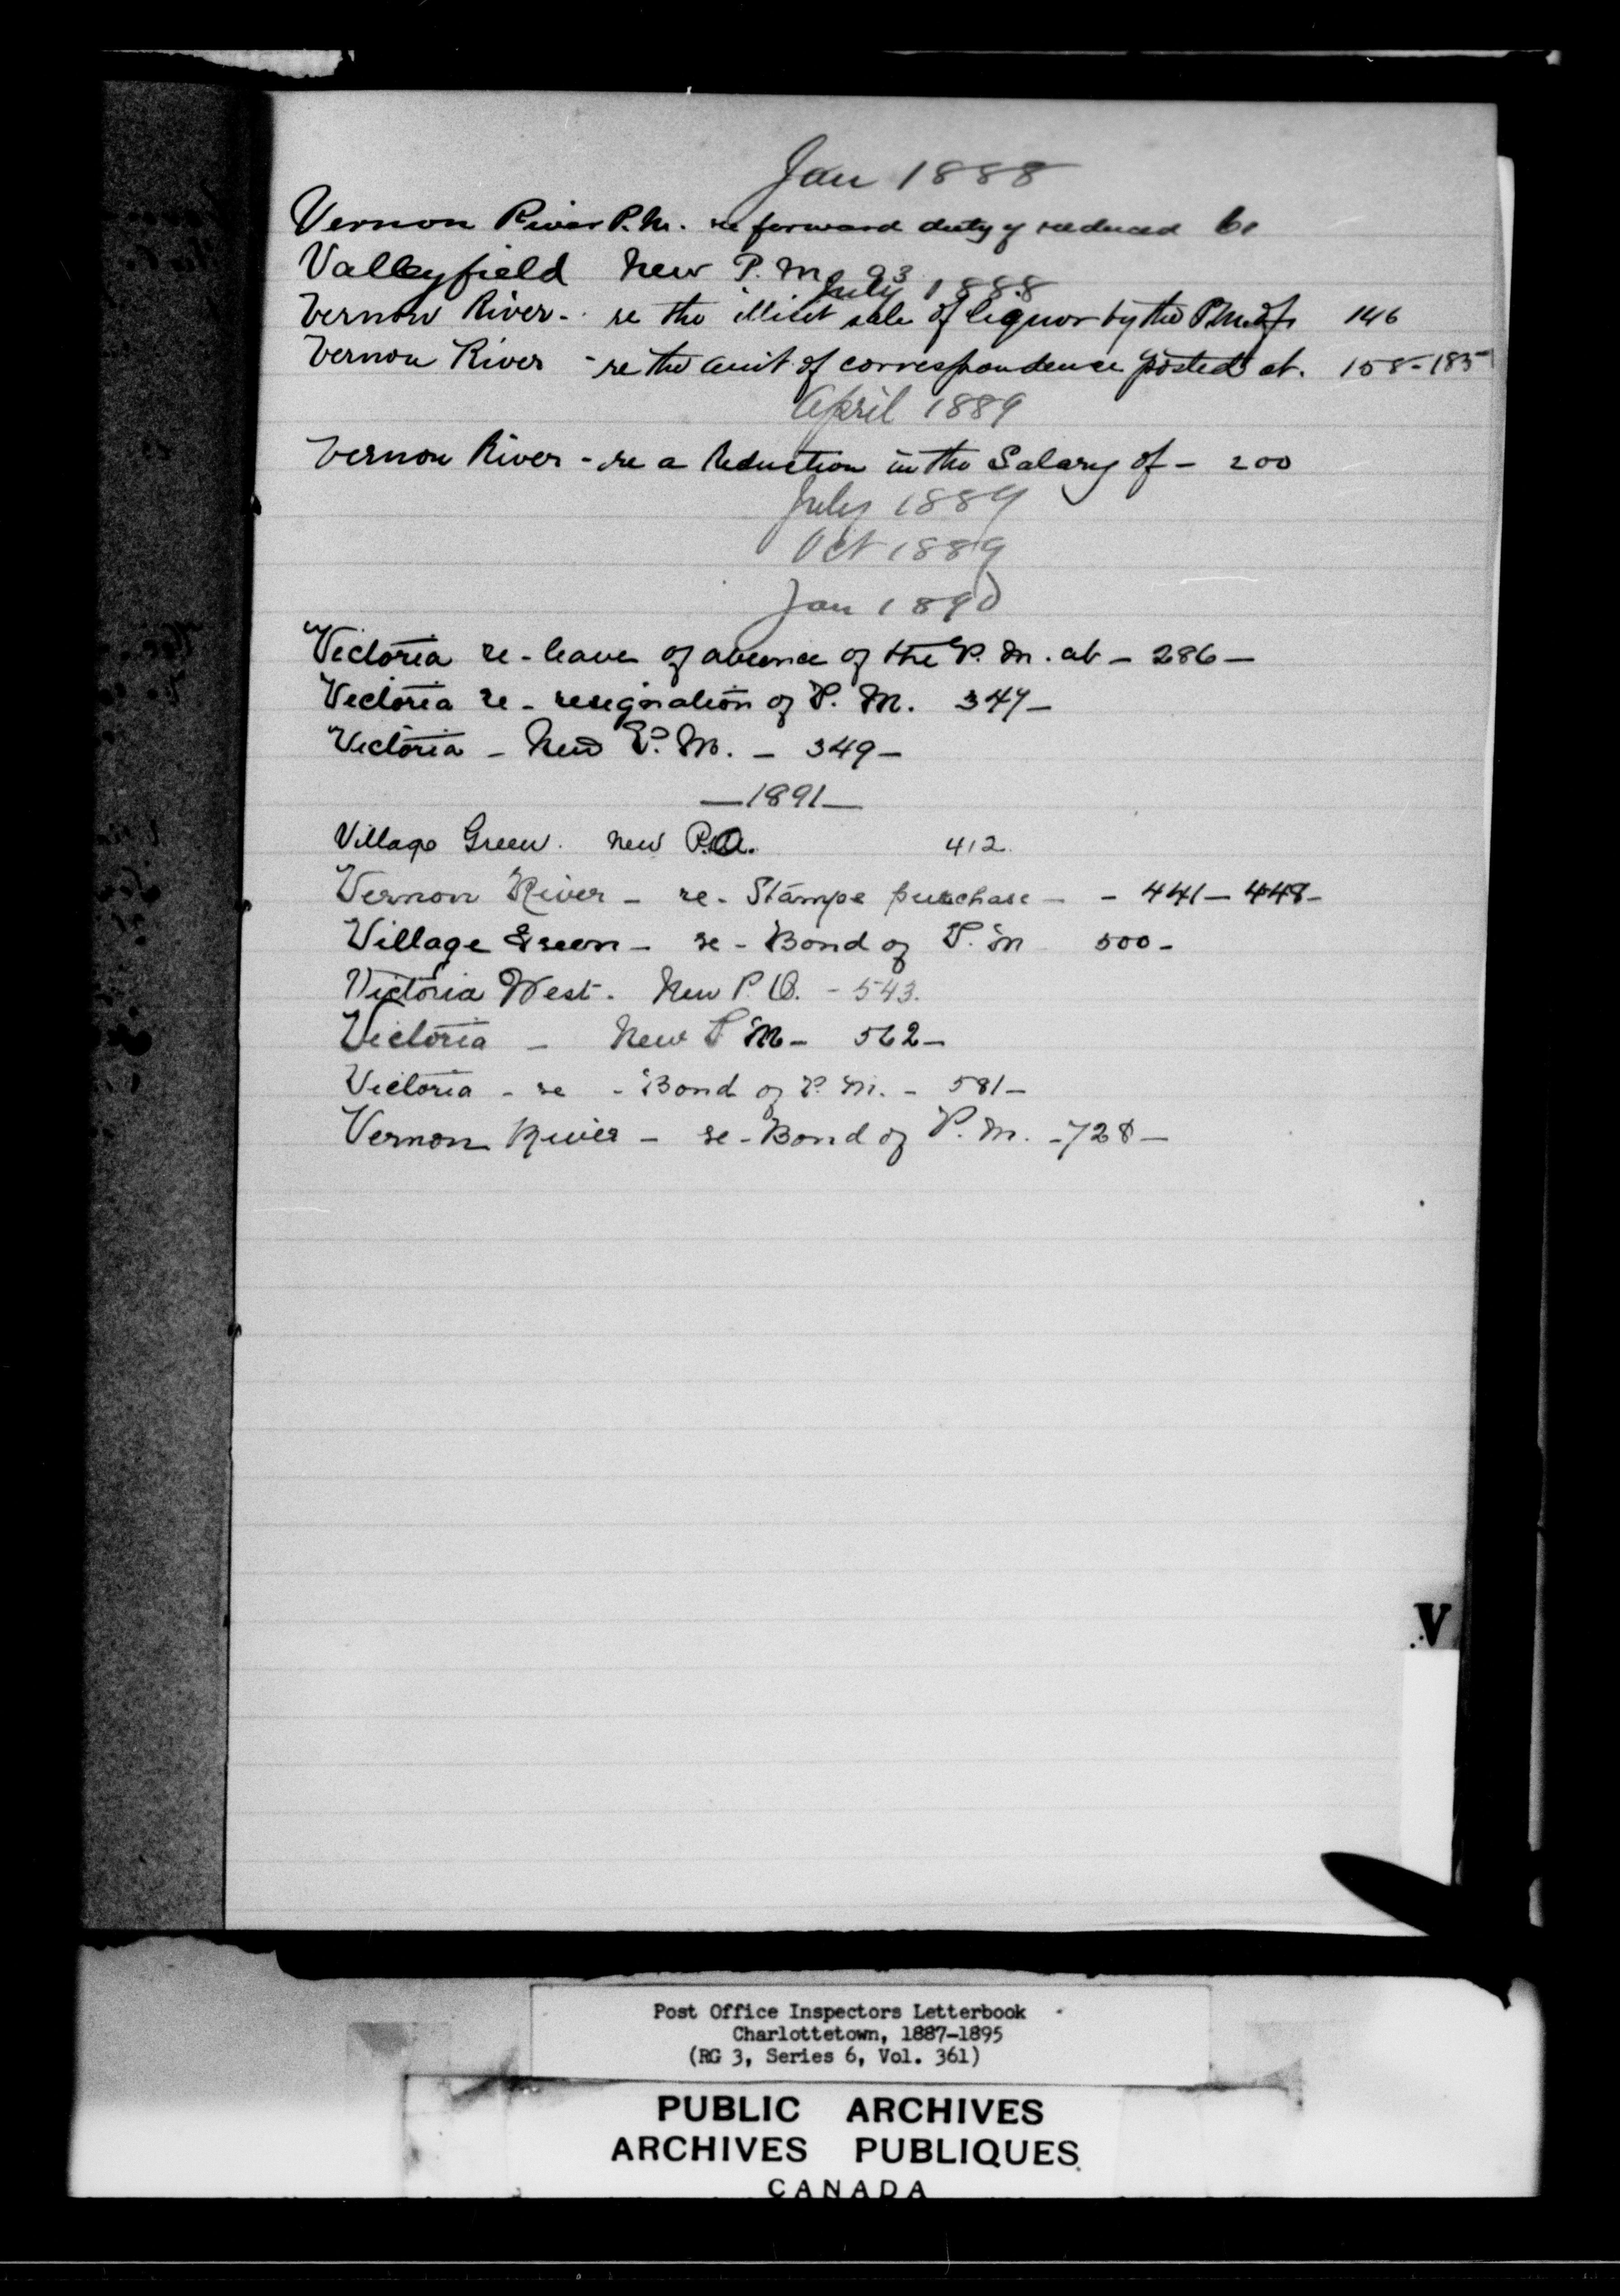 Jan 1888
Vernon River P.M. re forward duty of reduced 61
Valleyfield New P.M. 93
July 1888
Vernon River - re the illicit sale of liquor by the P.M. of 146
Vernon River - re the amt of correspondence posted at. 158-185
April 1889
Vernon River - re a Reduction in the Salary of - 200
July 1889
Oct 1889
Jan 1890
Victoria re - leave of absence of the P. M. at - 286 -
Victoria re - resignation of P. M. 347 -
Victoria - New P. M. - 349 -
- 1891 -
Village Green. New P.O. 412.
Vernon River - re - Stamps purchase - - 441 - 448 -
Village Green - re - Bond of P. M 500 -
Victoria West. New P. O. - 543.
Victoria - New P M - 562 -
Victoria - re - Bond of P. M. - 581 -
Vernon River - re - Bond of P. M. - 728 -
V
Post Office Inspectors Letterbook
Charlottetown, 1887-1895
(RG 3, Series 6, Vol. 361)
PUBLIC ARCHIVES
ARCHIVES PUBLIQUES
CANADA